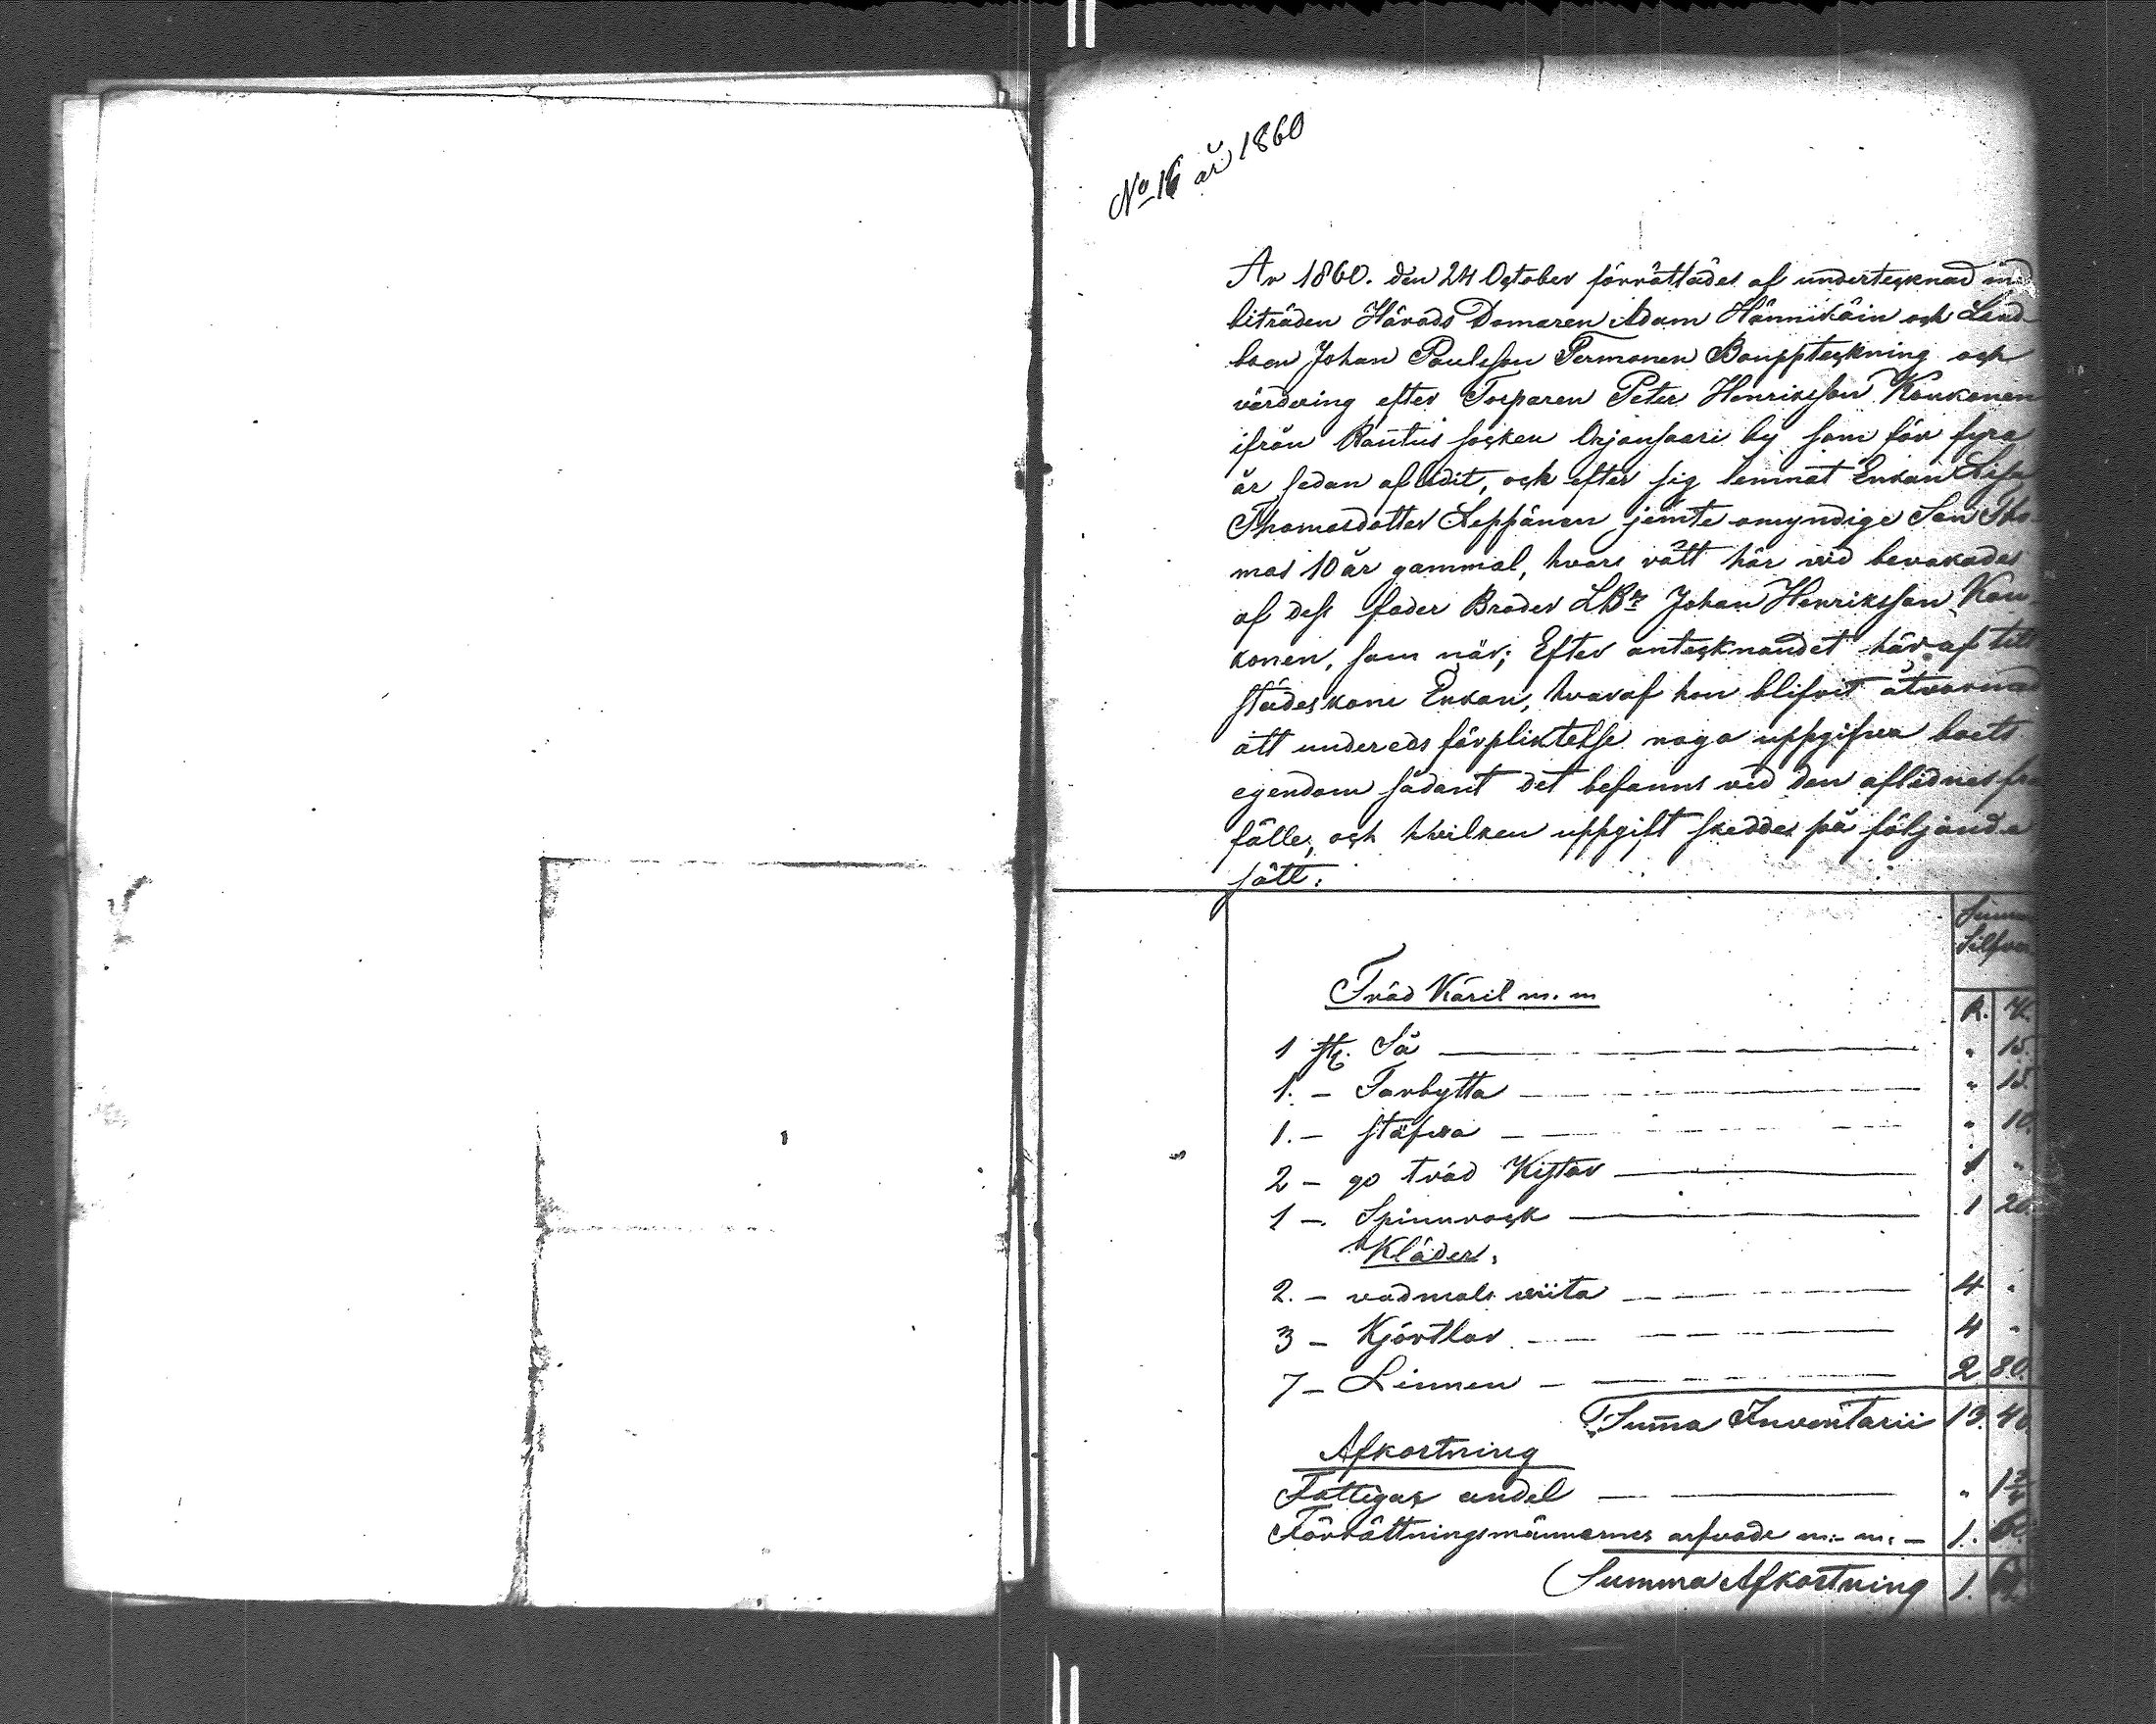 No 16 år 1860
År 1860. den 24 October förrättades af undertecknad med
biträden Härads Domaren Adam Hännikäin och Land-
boen Johan Paulsson Termonen Bouppteckning och
värdering efter Torparen Peter Henriksson Koukonen
ifrån Rautus socken Orjansaari by som för fyra
år sedan aflidit, och efter sig lemnat Enkan Lisa
Thomasdotter Leppänen jemte omyndige Son Tho-
mas 10 år gammal, hvars rätt här vid bevakades
af dess fader Broder LBr Johan Henriksson Kou-
konen, som när; Efter antecknandet häraf till
städeskom Enkan, hvaraf hon blifvit åtvarnad
att undereds förpliktelse noga uppgifva boets
egendom sådant det befanns vid den aflidnes frå
fälle, och hvilken uppgift skedde på följande
sätt:
Summa
Silfver
Träd Käril m. m
R. K.
1 st. Så " 15.
1. - Tarbytta " 15.
1. - stäfva " 10.
2 - go träd Kistor 1 "
1 -. Spinnrock 1 20.
Kläder,
2. - vadmals viita 4 "
3 - Kjortlar 4 "
7 - Linnen 2 80.
Summa Inventarii 13. 40
Afkortning
Fattigas andel "
Förrättningsmännernes arfvode m: m: - 1.
Summa Afkortning 1.